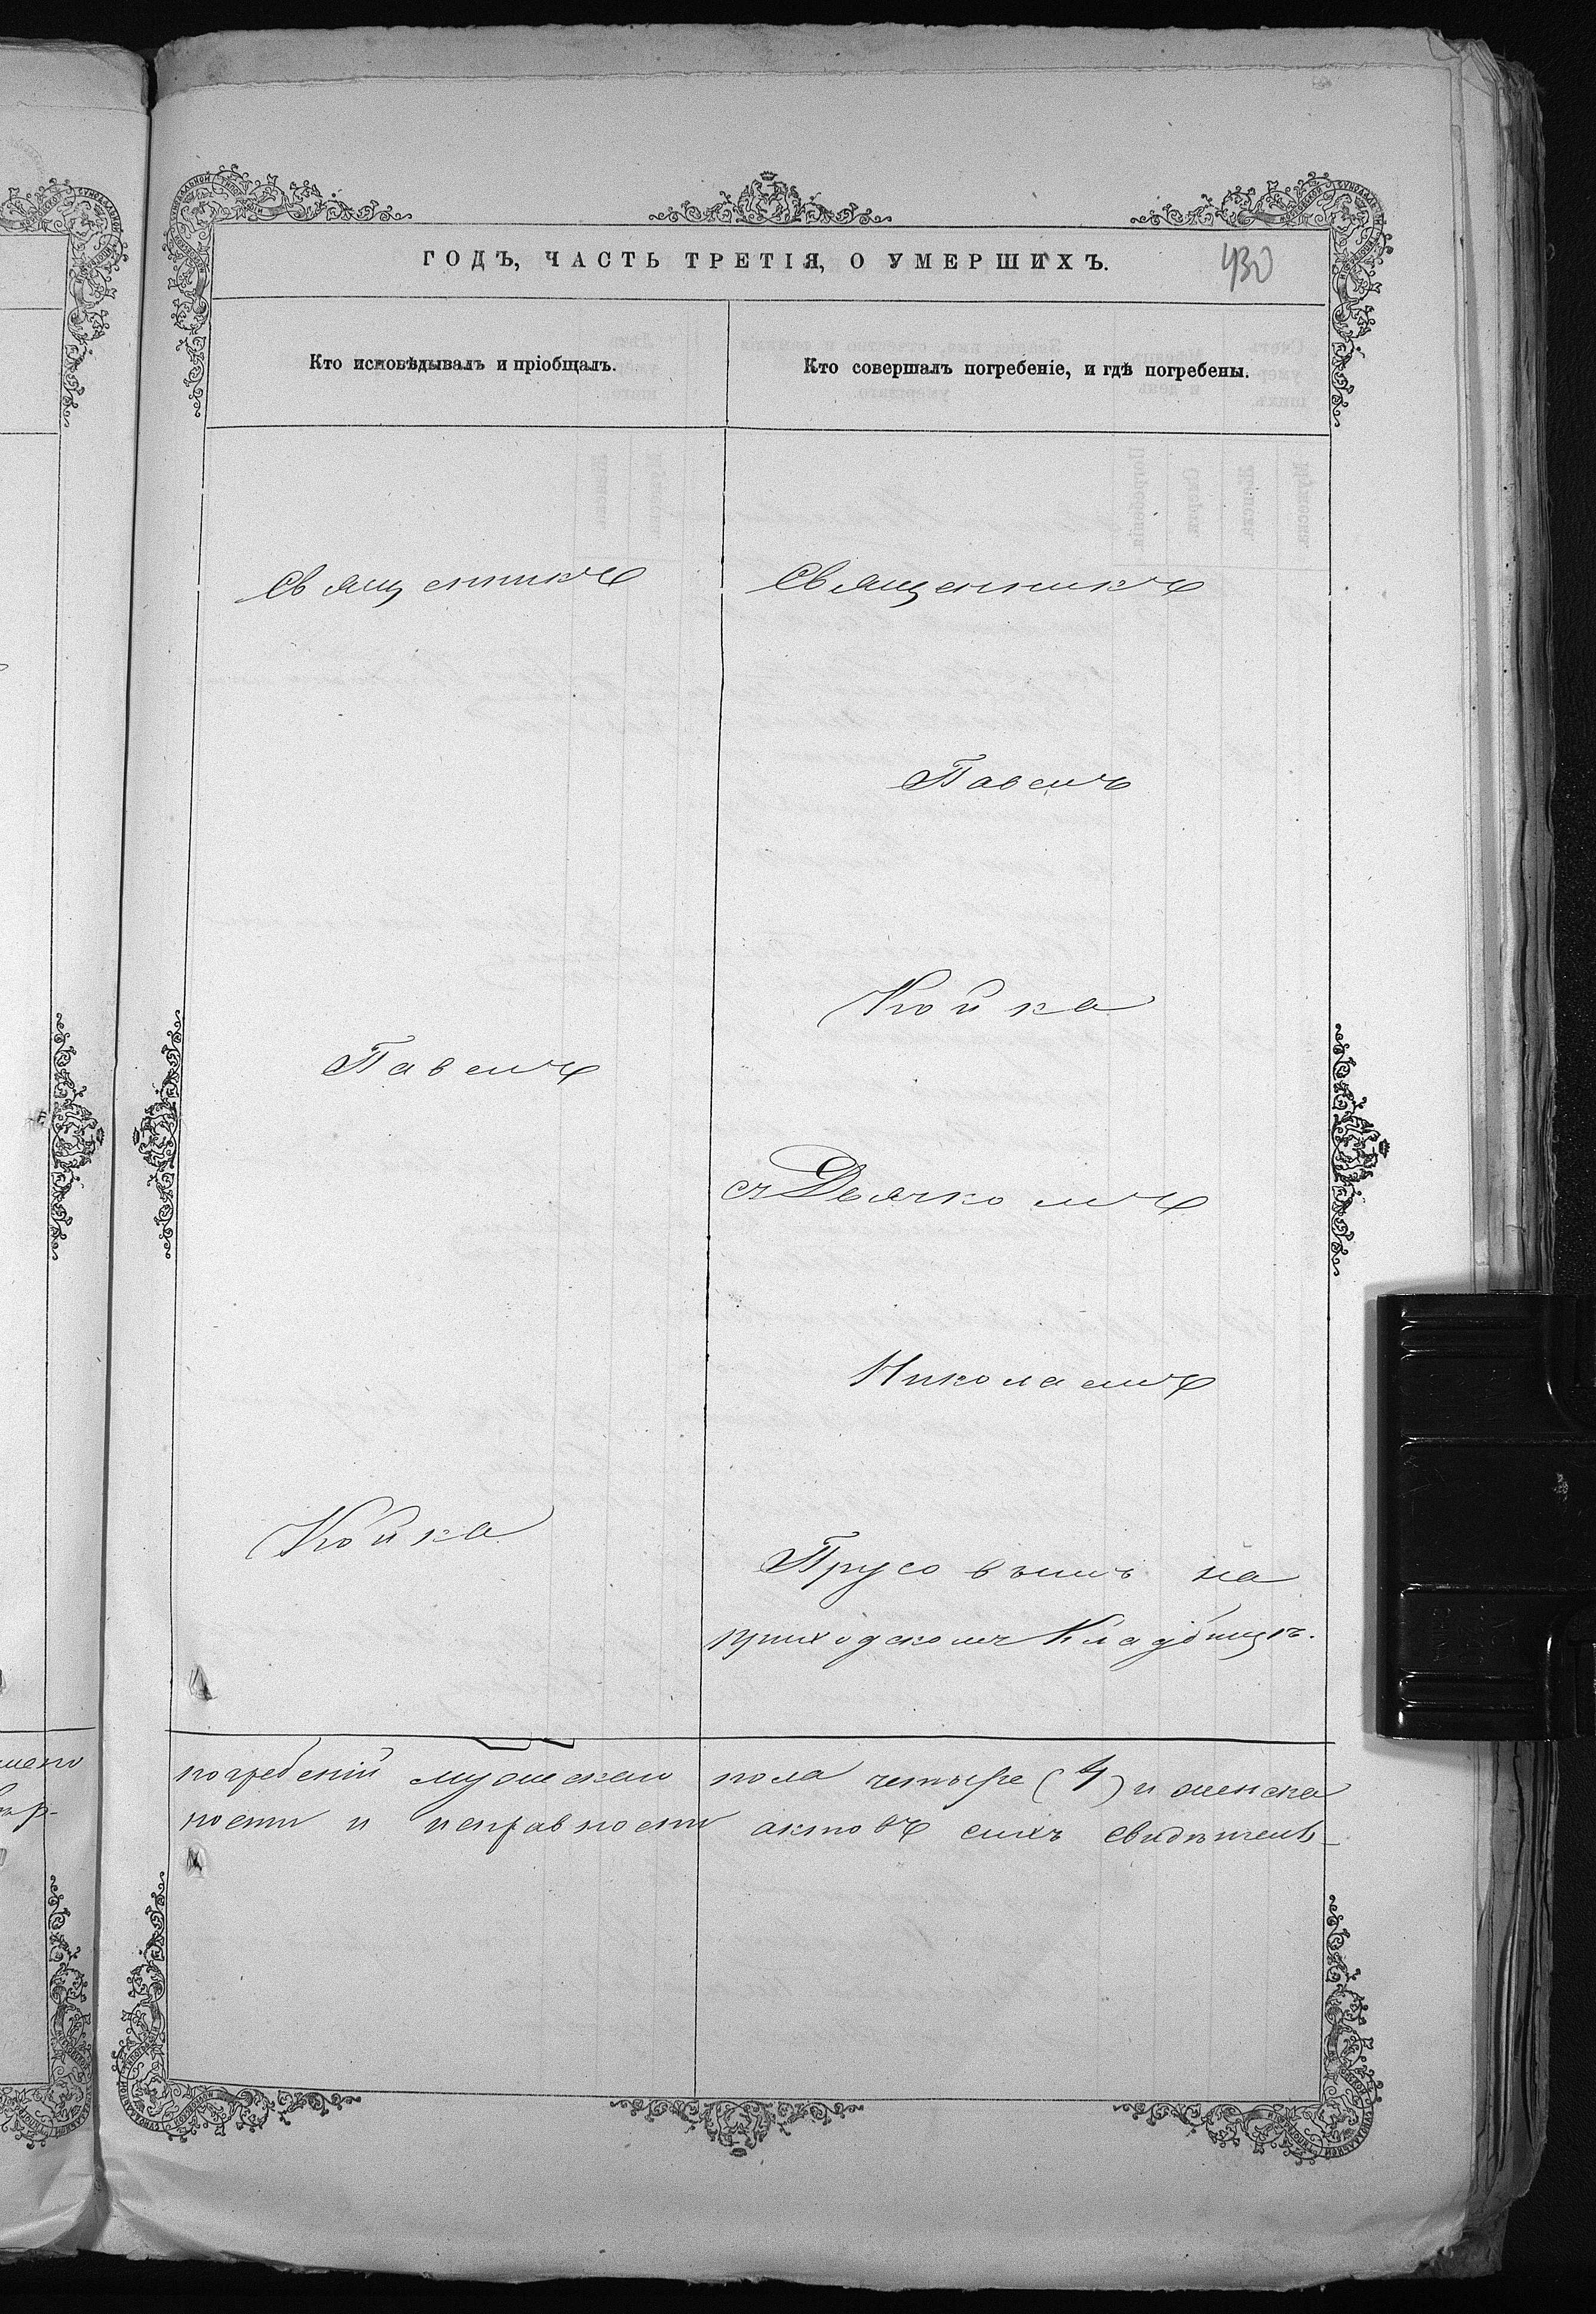 ГОДЪ, ЧАСТЬ ТРЕТІЯ, О УМЕРШИХЪ.
430
Кто исповѣдывалъ и пріобщалъ.
Кто совершалъ погребеніе, и гдѣ погребены.
Священникъ
Павелъ
Койка
Священникъ
Павелъ
Койка
съ Дьячкомъ
Николаемъ
Прусовымъ на
приходскомъ Кладбищѣ.
погребеній мужескаго пола четыре (4) и женска
ности и исправности актовъ сихъ свидѣтель